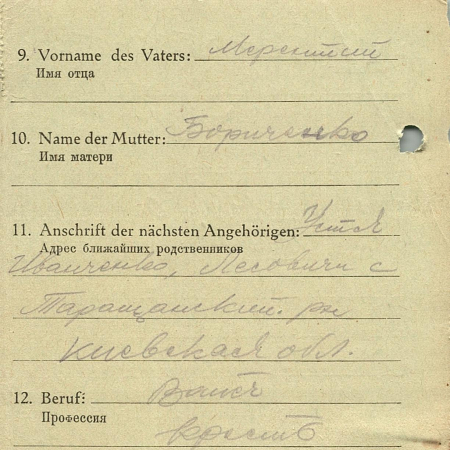 9. Vorname des Vaters: Мерентий
Имя отца
10. Name der Mutter: Бориченко
Имя матери
11. Anschrift der nächsten Angehörigen: Устя
Адрес ближайших родственников
Иванченко, Лесовичи с
Таращанский рн
Киевская обл.
12. Beruf:
Профессия